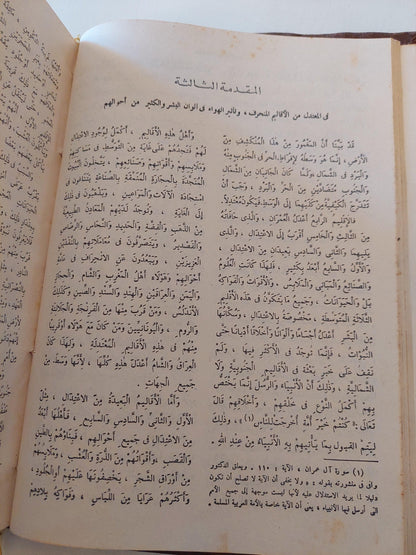 المقدمة الثالثة
فى المعتدل من الأقاليم المنحرف ، وتأثير الهواء فى ألوان البشر والكثير من أحوالهم
قَدْ بَيَّنَّا أَنَّ المَعْمُورَ مِنْ هٰذَا المُنْكَشِفِ مِنَ
الأَرْضِ ، إِنَّمَا هُوَ وَسَطُهُ لِإِفْرَاطِ الحَرِّ فى الجَنُوبِ مِنْهُ
وَالبَرْدِ فى الشَّمَالِ وَلَمَّا كَانَ الجَانِبَانِ مِنَ الشَّمَالِ
وَالجَنُوبِ مُتَضَادَّيْنِ مِنَ الحَرِّ وَالبَرْدِ ، وَجَبَ أَنْ
تَتَدَرَّجَ الكَيْفِيَّةُ مِنْ كِلَيْهِمَا إِلَى الوَسَطِ فَيَكُونُ مُعْتَدِلاً .
فَالإِقْلِيمُ الرَّابِعُ أَعْدَلُ العُمْرَانِ ، وَالَّذِى حَافَاتُهُ
مِنَ الثَّالِثِ وَالخَامِسِ أَقْرَبُ إِلَى الاِعْتِدَالِ ، وَالَّذِى
يَلِيهِمَا وَالثَّانِى وَالسَّادِسُ بَعِيدَانِ مِنَ الاِعْتِدَالِ ،
وَالأَوَّلُ وَالسَّابِعُ أَبْعَدُ بِكَثِيرٍ ، فَلِهٰذَا كَانَتِ العُلُومُ
وَالصَّنَائِعُ وَالمَبَانِى وَالمَلَابِسُ ، وَالأَقْوَاتُ وَالفَوَاكِهُ
بَلْ وَالحَيَوَانَاتُ ، وَجَمِيعُ مَا يَتَكَوَّنُ فى هٰذِهِ الأَقَالِيمِ
الثَّلَاثَةِ المُتَوَسِّطَةِ ، مَخْصُوصَةً بِالاِعْتِدَالِ ، وَسُكَّانُهَا
مِنَ البَشَرِ أَعْدَلُ أَجْسَامًا وَأَلْوَانًا وَأَخْلَاقًا وَأَدْيَانًا حَتَّى
النُّبُوَّاتُ ، فَإِنَّمَا تُوجَدُ فى الأَكْثَرِ فِيهَا ، وَلَمْ
نَقِفْ عَلَى خَبَرِ بَعْثَةٍ فى الأَقَالِيمِ الجَنُوبِيَّةِ وَلَا
الشَّمَالِيَّةِ ، وَذٰلِكَ أَنَّ الأَنْبِيَاءَ وَالرُّسُلَ إِنَّمَا يَخْتَصُّ
بِهِمْ أَكْمَلُ النَّوْعِ فى خَلْقِهِمْ ، وَأَخْلَاقِهِمْ قَالَ
تَعَالَى (١) ﴿ كُنْتُمْ خَيْرَ أُمَّةٍ أُخْرِجَتْ لِلنَّاسِ ﴾ وَذٰلِكَ
لِيَتِمَّ القَبُولُ بِمَا يَأْتِيهِمْ بِهِ الأَنْبِيَاءُ مِنْ عِنْدِ اللهِ .
وَأَهْلُ هٰذِهِ الأَقَالِيمِ ، أَكْمَلُ لِوُجُودِ الاِعْتِدَالِ
لَهُمْ فَتَجِدُهُمْ عَلَى غَايَةٍ مِنَ التَّوَسُّطِ فى مَسَاكِنِهِمْ
وَمَلَابِسِهِمْ وَأَقْوَاتِهِمْ وَصَنَائِعِهِمْ ، يَتَّخِذُونَ البُيُوتَ
المُنَجَّدَةَ بِالحِجَارَةِ المُنَمَّقَةَ بِالصِّنَاعَةِ وَيَتَنَاغَوْنَ فى
اسْتِجَادَةِ الآلَاتِ وَالمَوَاعِينِ ، وَيَذْهَبُونَ فى ذٰلِكَ
إِلَى الغَايَةِ ، وَتُوجَدُ لَدَيْهِمُ المَعَادِنُ الطَّبِيعِيَّةُ
مِنَ الذَّهَبِ وَالفِضَّةِ وَالحَدِيدِ وَالنُّحَاسِ وَالرَّصَاصِ
وَالقَصْدِيرِ ، وَيَتَصَرَّفُونَ فى مُعَامَلَاتِهِمْ بِالنَّقْدَيْنِ
العَزِيزَيْنِ ، وَيَبْعُدُونَ عَنِ الاِنْحِرَافِ فى عَامَّةِ
أَحْوَالِهِمْ وَهٰؤُلَاءِ أَهْلُ المَغْرِبِ وَالشَّامِ وَالحِجَازِ
وَاليَمَنِ وَالعِرَاقَيْنِ وَالهِنْدِ وَالسِّنْدِ وَالصِّينِ وَكَذٰلِكَ
الأَنْدَلُسُ ، وَمَنْ قَرُبَ مِنْهَا مِنَ الفَرَنْجَةِ وَالجَلَالِقَةِ
وَالرُّومِ ، وَاليُونَانِيِّينَ وَمَنْ كَانَ مَعَ هٰؤُلَاءِ أَوْ قَرِيبًا
مِنْهُمْ فى هٰذِهِ الأَقَالِيمِ المُعْتَدِلَةِ ، وَلِهٰذَا كَانَ
العِرَاقُ وَالشَّامُ أَعْدَلَ هٰذِهِ كُلِّهَا ، لِأَنَّهَا وَسَطٌ مِنْ
جَمِيعِ الجِهَاتِ .
وَأَمَّا الأَقَالِيمُ البَعِيدَةُ مِنَ الاِعْتِدَالِ ، مِثْلُ
الأَوَّلِ وَالثَّانِى وَالسَّادِسِ وَالسَّابِعِ ، فَأَهْلُهَا أَبْعَدُ
مِنَ الاِعْتِدَالِ فى جَمِيعِ أَحْوَالِهِمْ ، فَبِنَاؤُهُمْ بِالطِّينِ
وَالقَصَبِ ، وَأَقْوَاتُهُمْ مِنَ الذُّرَةِ وَالعُشْبِ ، وَمَلَابِسُهُمْ
مِنْ أَوْرَاقِ الشَّجَرِ ، يَخْصِفُونَهَا عَلَيْهِمْ أَوِ الجُلُودِ ،
وَأَكْثَرُهُمْ عَرَايَا مِنَ اللِّبَاسِ ، وَفَوَاكِهُ بِلَادِهِمْ
(١) سورة آل عمران ، الآية : ١١٠ . ويعلق الدكتور
وافى فى منشورته بقوله : « ولا يخفى أن الآية لا تصلح أن تكون
دليلا لما يريد الاستدلال عليه لأنها ليست موجهة إلى جميع الأمم
التى أرسل فيها الأنبياء ، يعنى أن الآية خاصة بالأمة العربية المسلمة » .